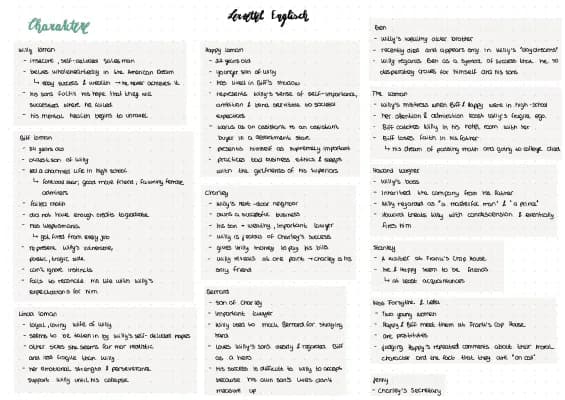 Lernzettel Englisch
Charaktere
Willy Loman
- insecure, self-deluded salesman
- belives wholeheartedly in the American Dream
↳ easy success & wealth → he never achieves it
- his sons fulfill his hope that they will
succeed where he failed
- his mental health begins to unravel
Biff Loman
- 34 years old
- oldest son of Willy
- led a charmed life in high school
↳ football star; good male friends, fawning female
admirers
- failed math
- did not have enough credits to graduate
- has kleptomania
↳ got fired from every job
- represents Willy's vulnerable,
poetic, tragic side
- can't ignore instincts
- fails to reconcile his life with Willy's
expectations for him
Linda Loman
- loyal, loving wife of Willy
- seems to be taken in by Willy's self-deluded hopes
- other sides she seems far more realistic
and less fragile than Willy
- her emotional strength & perseverance
support Willy until his collapse
Happy Loman
- 32 years old
- younger son of Willy
- has lived in Biff's shadow
- represents Willy's sense of self-importance,
ambition & blind servitude to societal
expectations
- works as an assistant to an assistant
buyer in a department store
- presents himself as supremely important
- practices bad business ethics & sleeps
with the girlfriends of his superiors
Charley
- Willy's next-door neighbor
- owns a successful business
- his son - wealthy, important lawyer
- Willy is jealous of Charley's success
- gives Willy money to pay his bills
- Willy reveals at one point → Charley is his
only friend
Bernard
- son of Charley
- important lawyer
- Willy used to mock Bernard for studying
hard
- loves Willy's sons dearly & regards Biff
as a hero
- his success is difficult to Willy to accept
because his own son's lives don't
measure up
Ben
- Willy's wealthy older brother
- recently died and appears only in Willy's "daydreams"
- Willy regards Ben as a symbol of success that he so
desperately craves for himself and his sons
The Woman
- Willy's mistress when Biff & Happy were in high-school
- her attention & admiration boost Willy's fragile ego
- Biff catches Willy in his hotel room with her
- Biff loses faith in his father
↳ his dream of passing math and going to college dies
Howard Wagner
- Willy's boss
- inherited the company from his father
- Willy regarded as "a masterful man" & "a prince"
- Howard treats Willy with condescension & eventually
fires him
Stanley
- A waiter at Frank's Chop House
- he & Happy seem to be friends
↳ at least acquaintances
Miss Forsythe & Letta
- Two young women
- Happy & Biff meet them at Frank's Chop House
- are prostitutes
- judging Happy's repeated comments about their moral
character and the fact that they are "on call"
Jenny
- Charley's Secretary